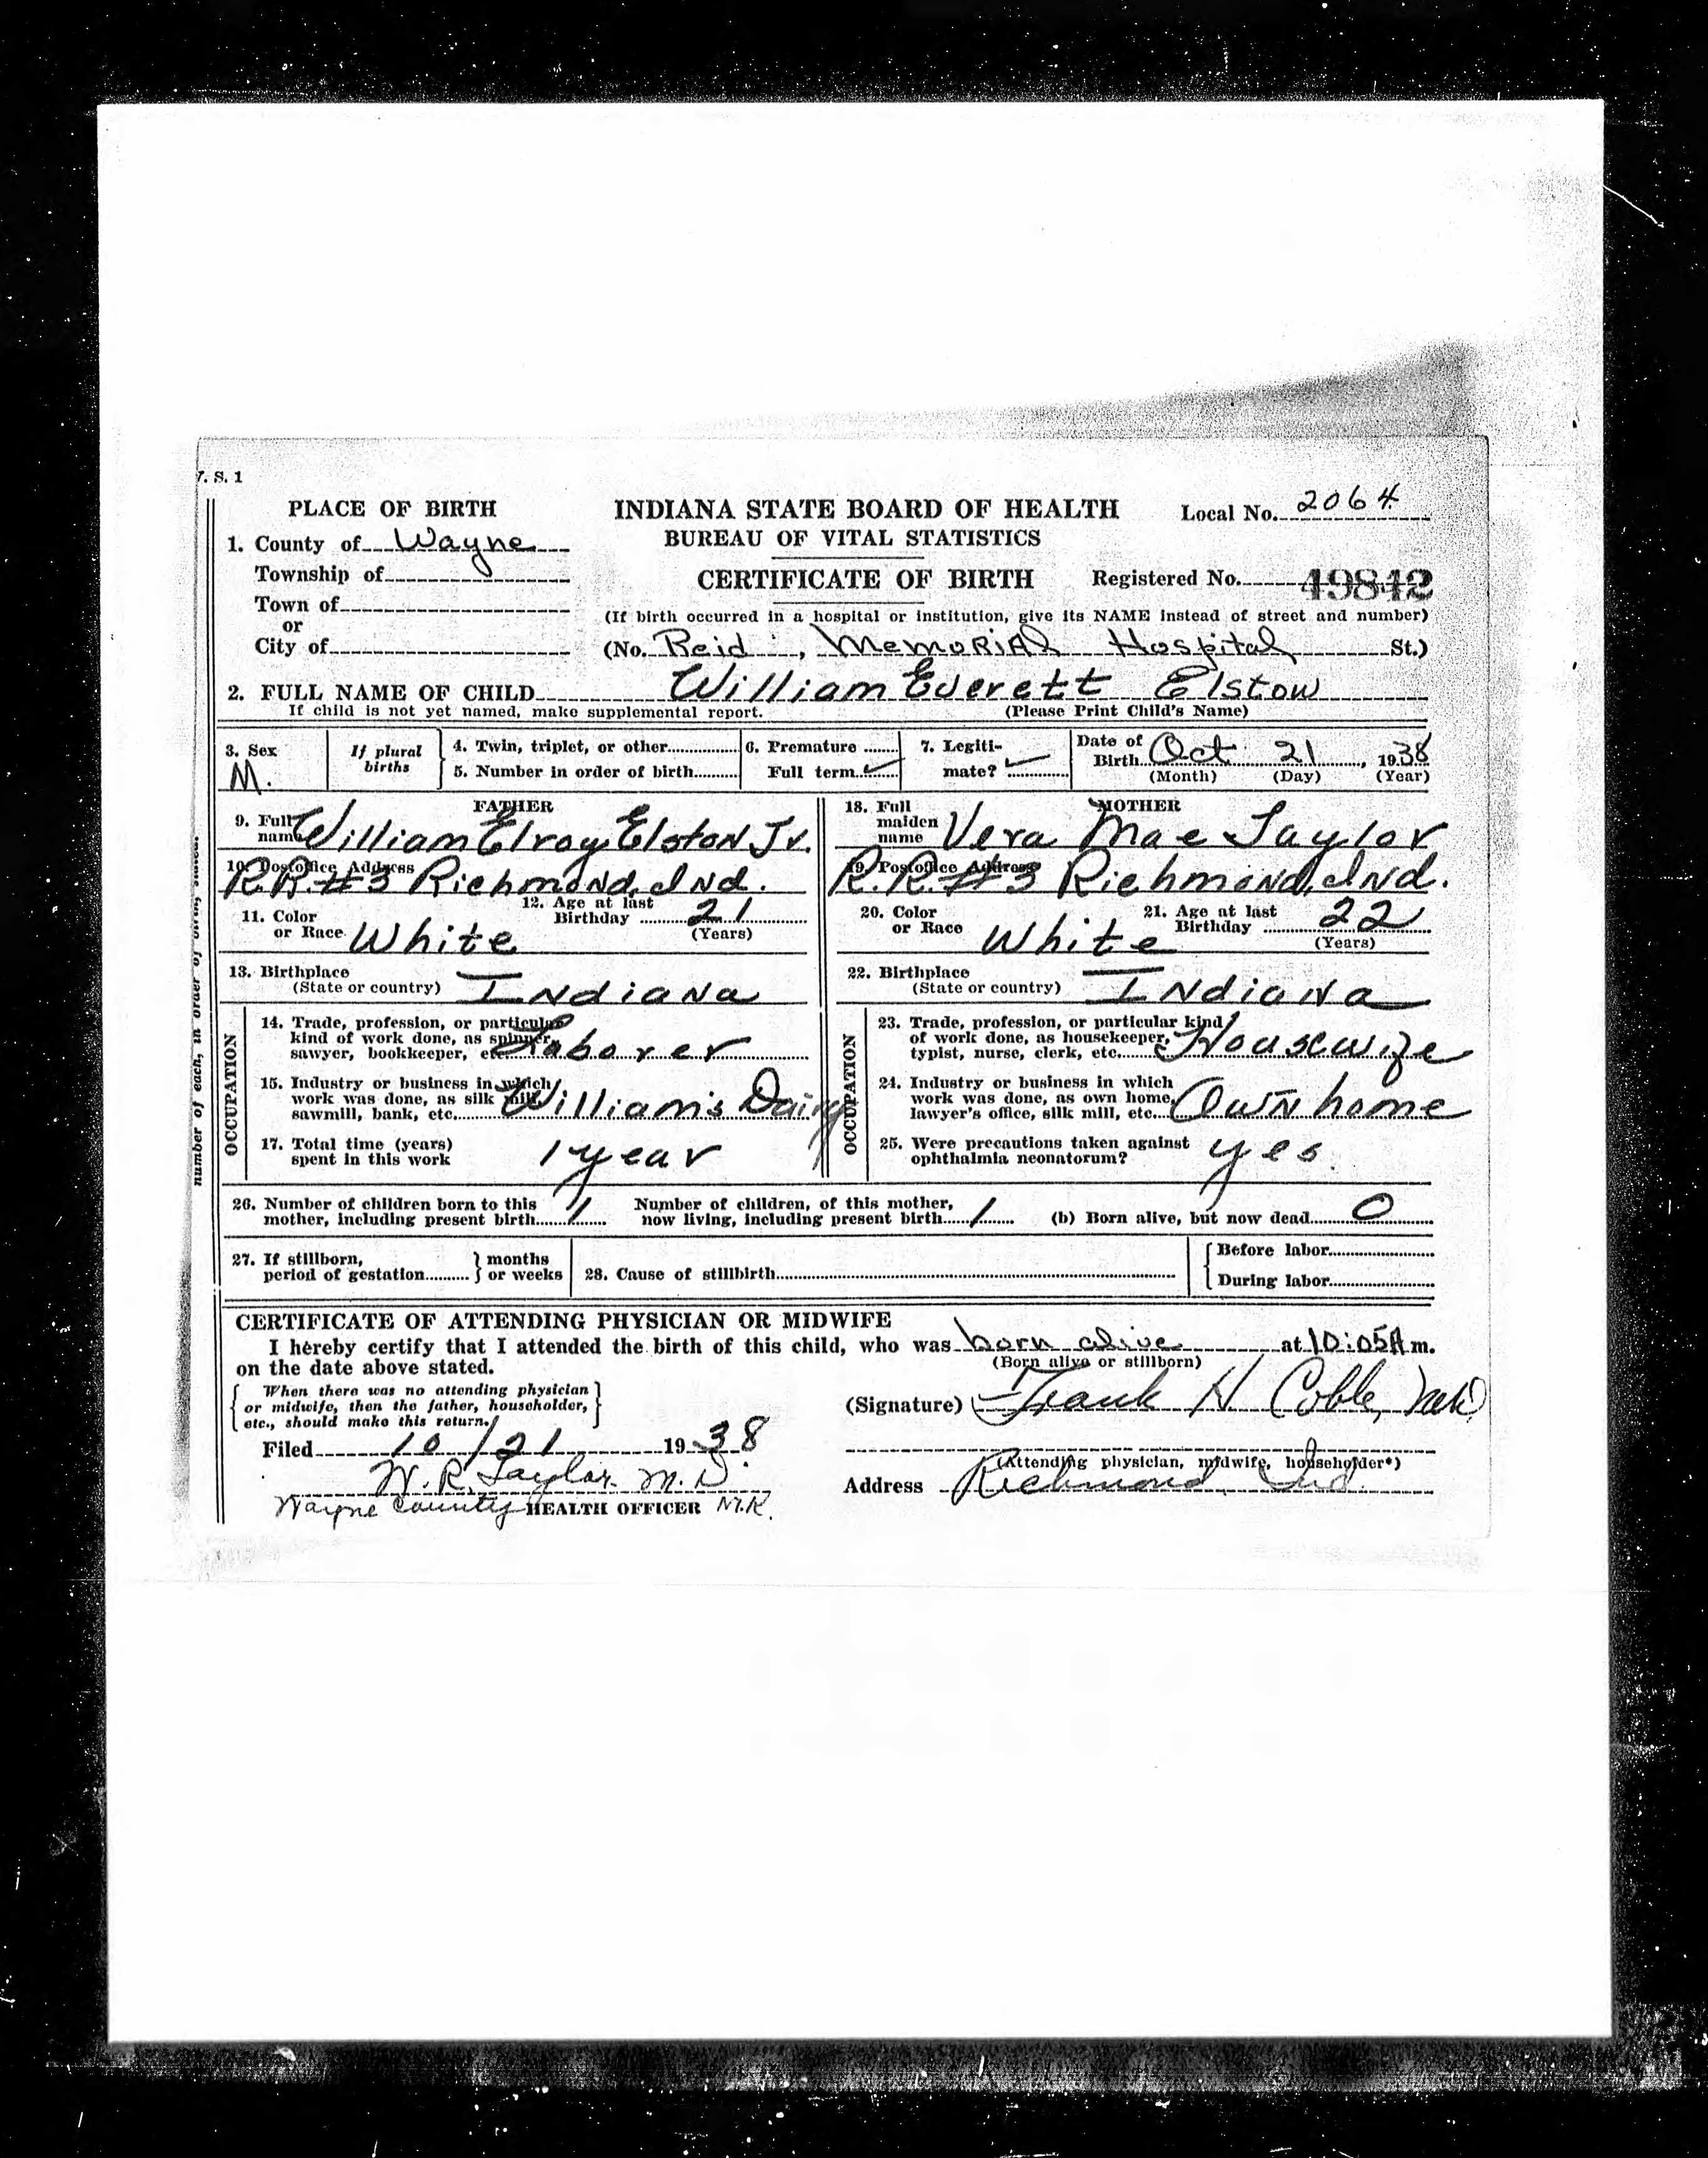 V. S. 1
PLACE OF BIRTH
INDIANA STATE BOARD OF HEALTH
Local No. 2064
1. County of Wayne
BUREAU OF VITAL STATISTICS
Township of
CERTIFICATE OF BIRTH
Registered No. 49842
Town of
or
(If birth occurred in a hospital or institution, give its NAME instead of street and number)
City of
(No. Reid, Memorial Hospital St.)
2. FULL NAME OF CHILD William Everett Elston
If child is not yet named, make supplemental report. (Please Print Child's Name)
3. Sex M.
If plural births
4. Twin, triplet, or other
5. Number in order of birth
6. Premature
Full term ✓
7. Legiti-
mate? ✓
Date of
Birth Oct 21, 1938
(Month) (Day) (Year)
FATHER
9. Full
name William Elroy Elston Jr.
10. Postoffice Address
R.R. #3 Richmond, Ind.
11. Color
or Race White
12. Age at last
Birthday 21
(Years)
13. Birthplace
(State or country) Indiana
OCCUPATION
14. Trade, profession, or particular
kind of work done, as spinner,
sawyer, bookkeeper, etc. Laborer
15. Industry or business in which
work was done, as silk mill,
sawmill, bank, etc. William's Dairy
17. Total time (years)
spent in this work 1 year
MOTHER
18. Full
maiden
name Vera Mae Taylor
19. Postoffice Address
R.R. #3 Richmond, Ind.
20. Color
or Race White
21. Age at last
Birthday 22
(Years)
22. Birthplace
(State or country) Indiana
OCCUPATION
23. Trade, profession, or particular kind
of work done, as housekeeper,
typist, nurse, clerk, etc. Housewife
24. Industry or business in which
work was done, as own home,
lawyer's office, silk mill, etc. Own home
25. Were precautions taken against
ophthalmia neonatorum? yes.
26. Number of children born to this
mother, including present birth 1
Number of children, of this mother,
now living, including present birth 1
(b) Born alive, but now dead 0
27. If stillborn,
period of gestation } months
or weeks
28. Cause of stillbirth
Before labor
During labor
CERTIFICATE OF ATTENDING PHYSICIAN OR MIDWIFE
I hereby certify that I attended the birth of this child, who was born alive at 10:05 A m.
on the date above stated. (Born alive or stillborn)
When there was no attending physician
or midwife, then the father, householder,
etc., should make this return.
(Signature) Frank H Coble, M.D.
Filed 10/21 1938
(Attending physician, midwife, householder*)
W. R. Taylor M. D.
Address Richmond, Ind.
Wayne County HEALTH OFFICER M.K.
number of each, in order of birth, stated.